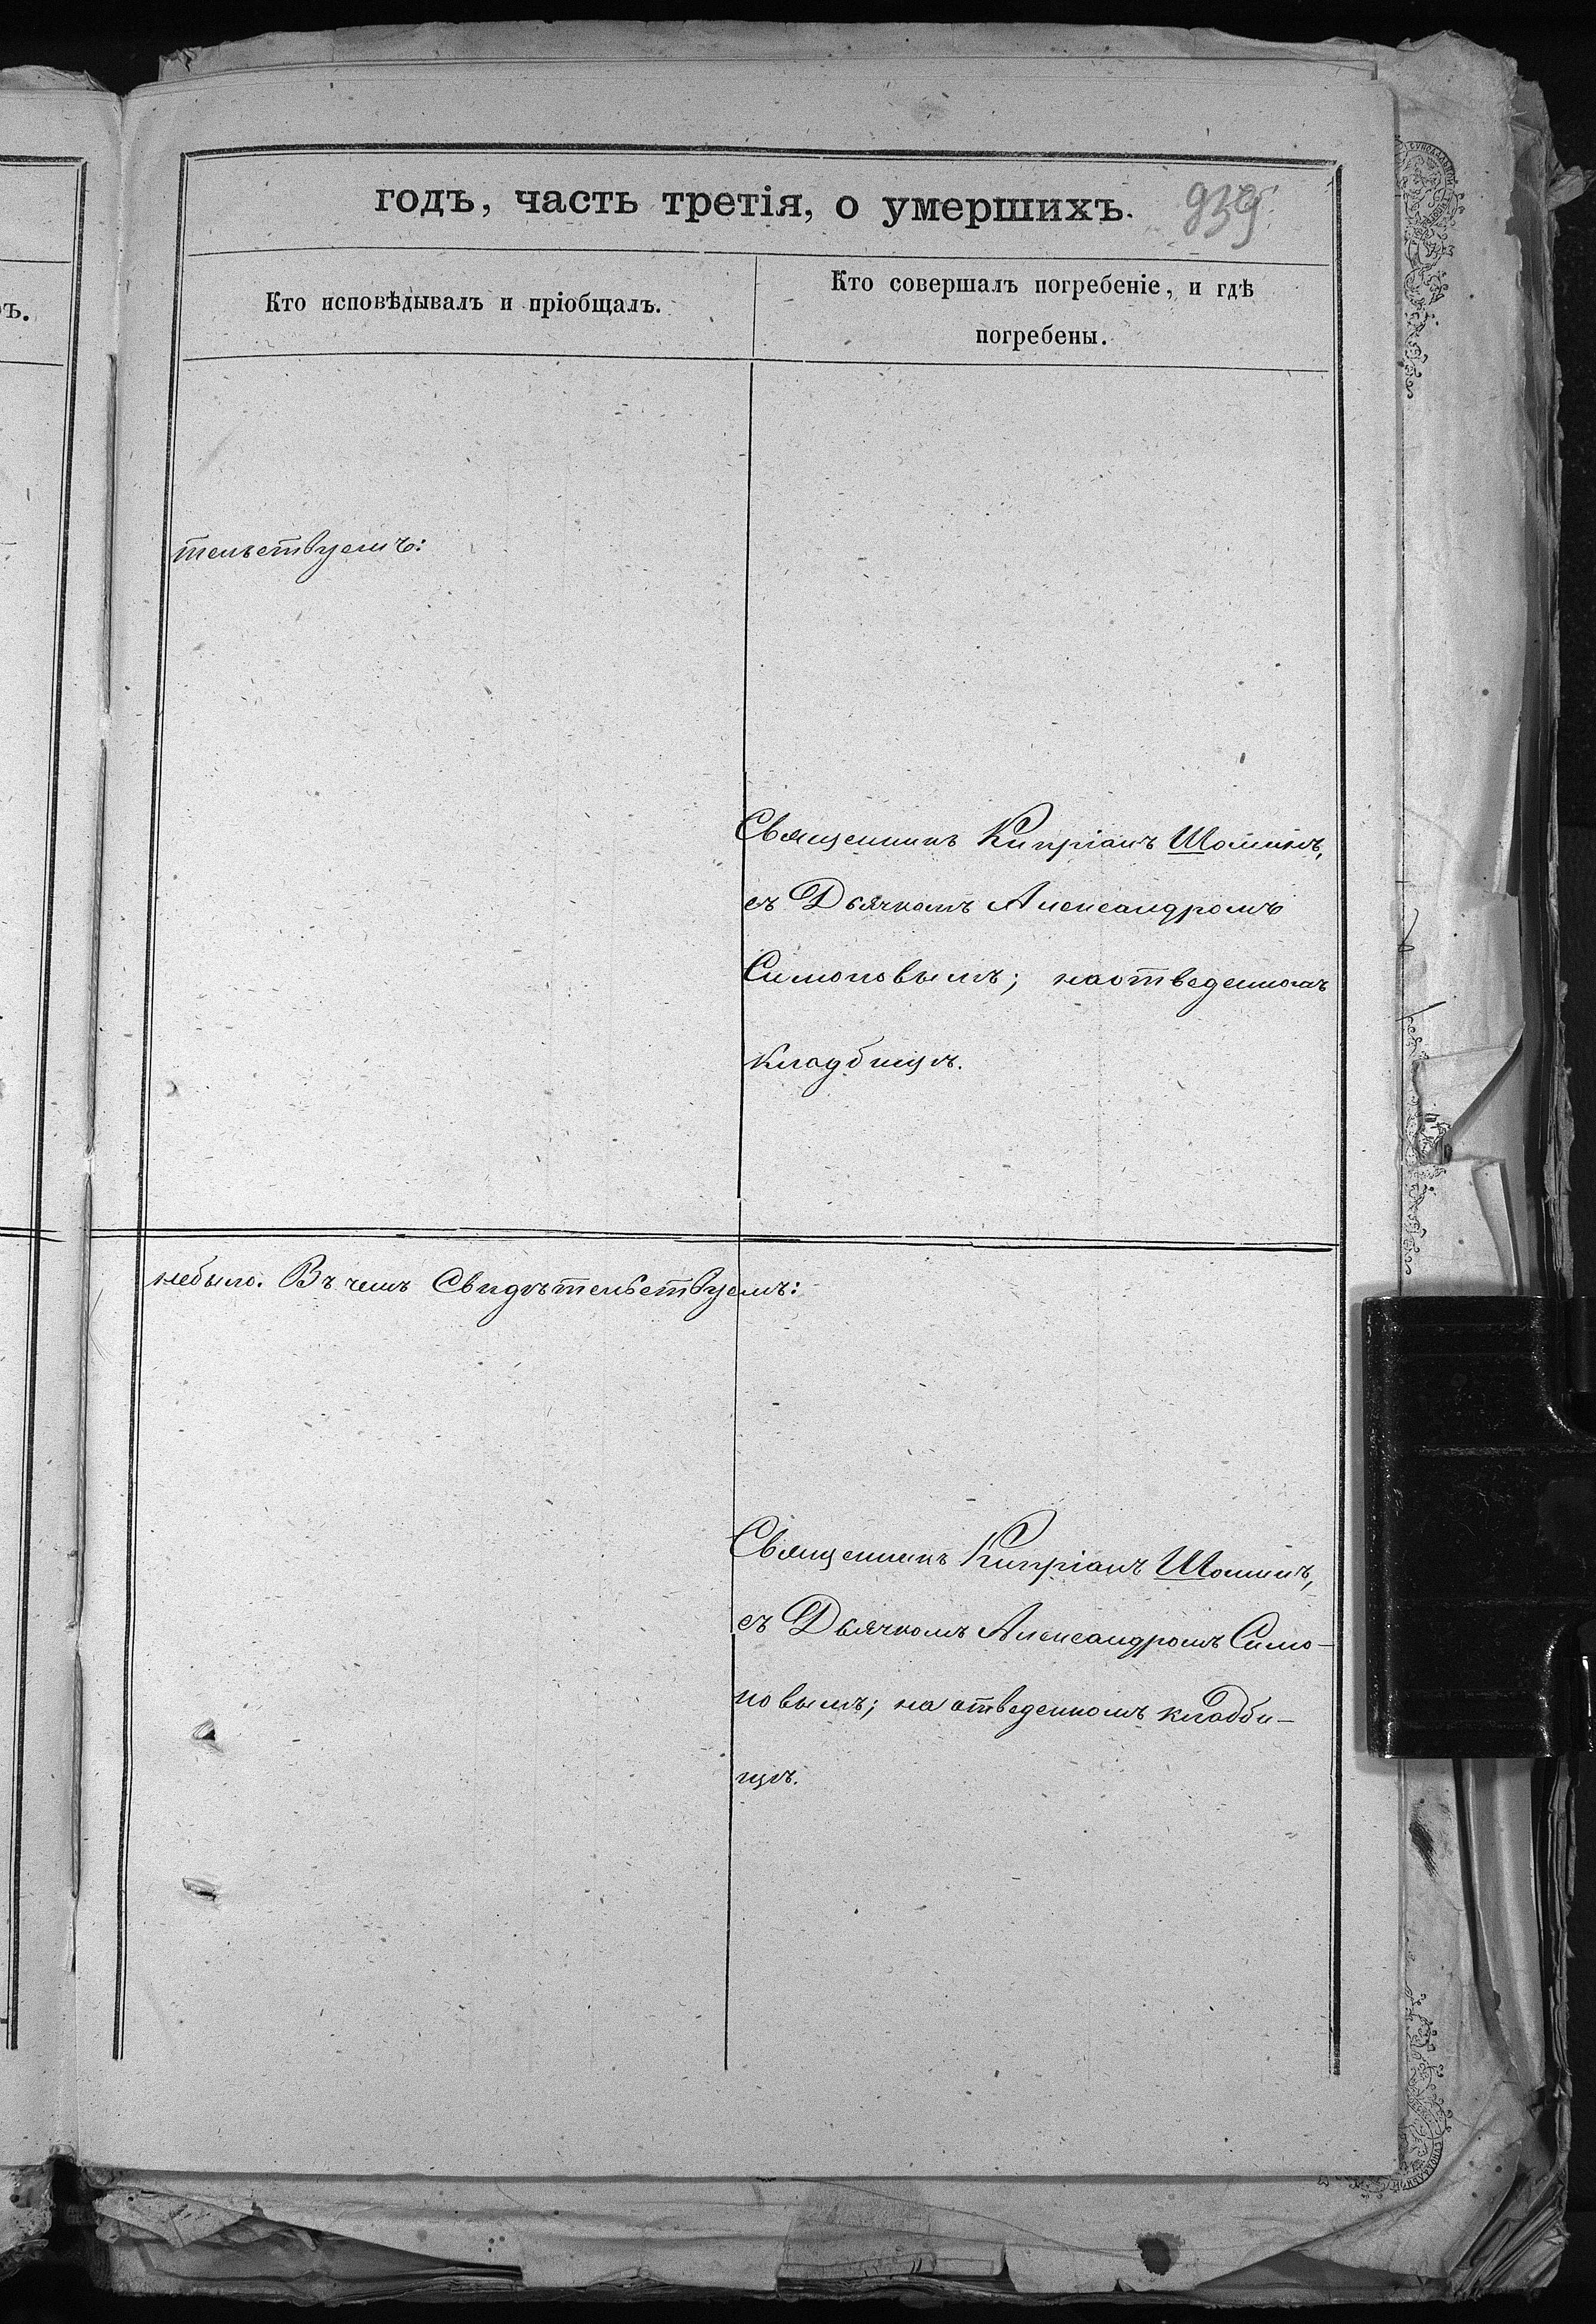 годъ, часть третія, о умершихъ.
Кто исповѣдывалъ и пріобщалъ.
Кто совершалъ погребеніе, и гдѣ
погребены.
тельствуемъ:
Священникъ Кипріанъ Шоминъ,
съ Дьячкомъ Александромъ
Симоновымъ; на отведенномъ
кладбищѣ.
небыло. Въ чемъ Свидѣтельствуемъ:
Священникъ Кипріанъ Шоминъ,
съ Дьячкомъ Александромъ Симо-
новымъ; на отведенномъ кладби-
щѣ.